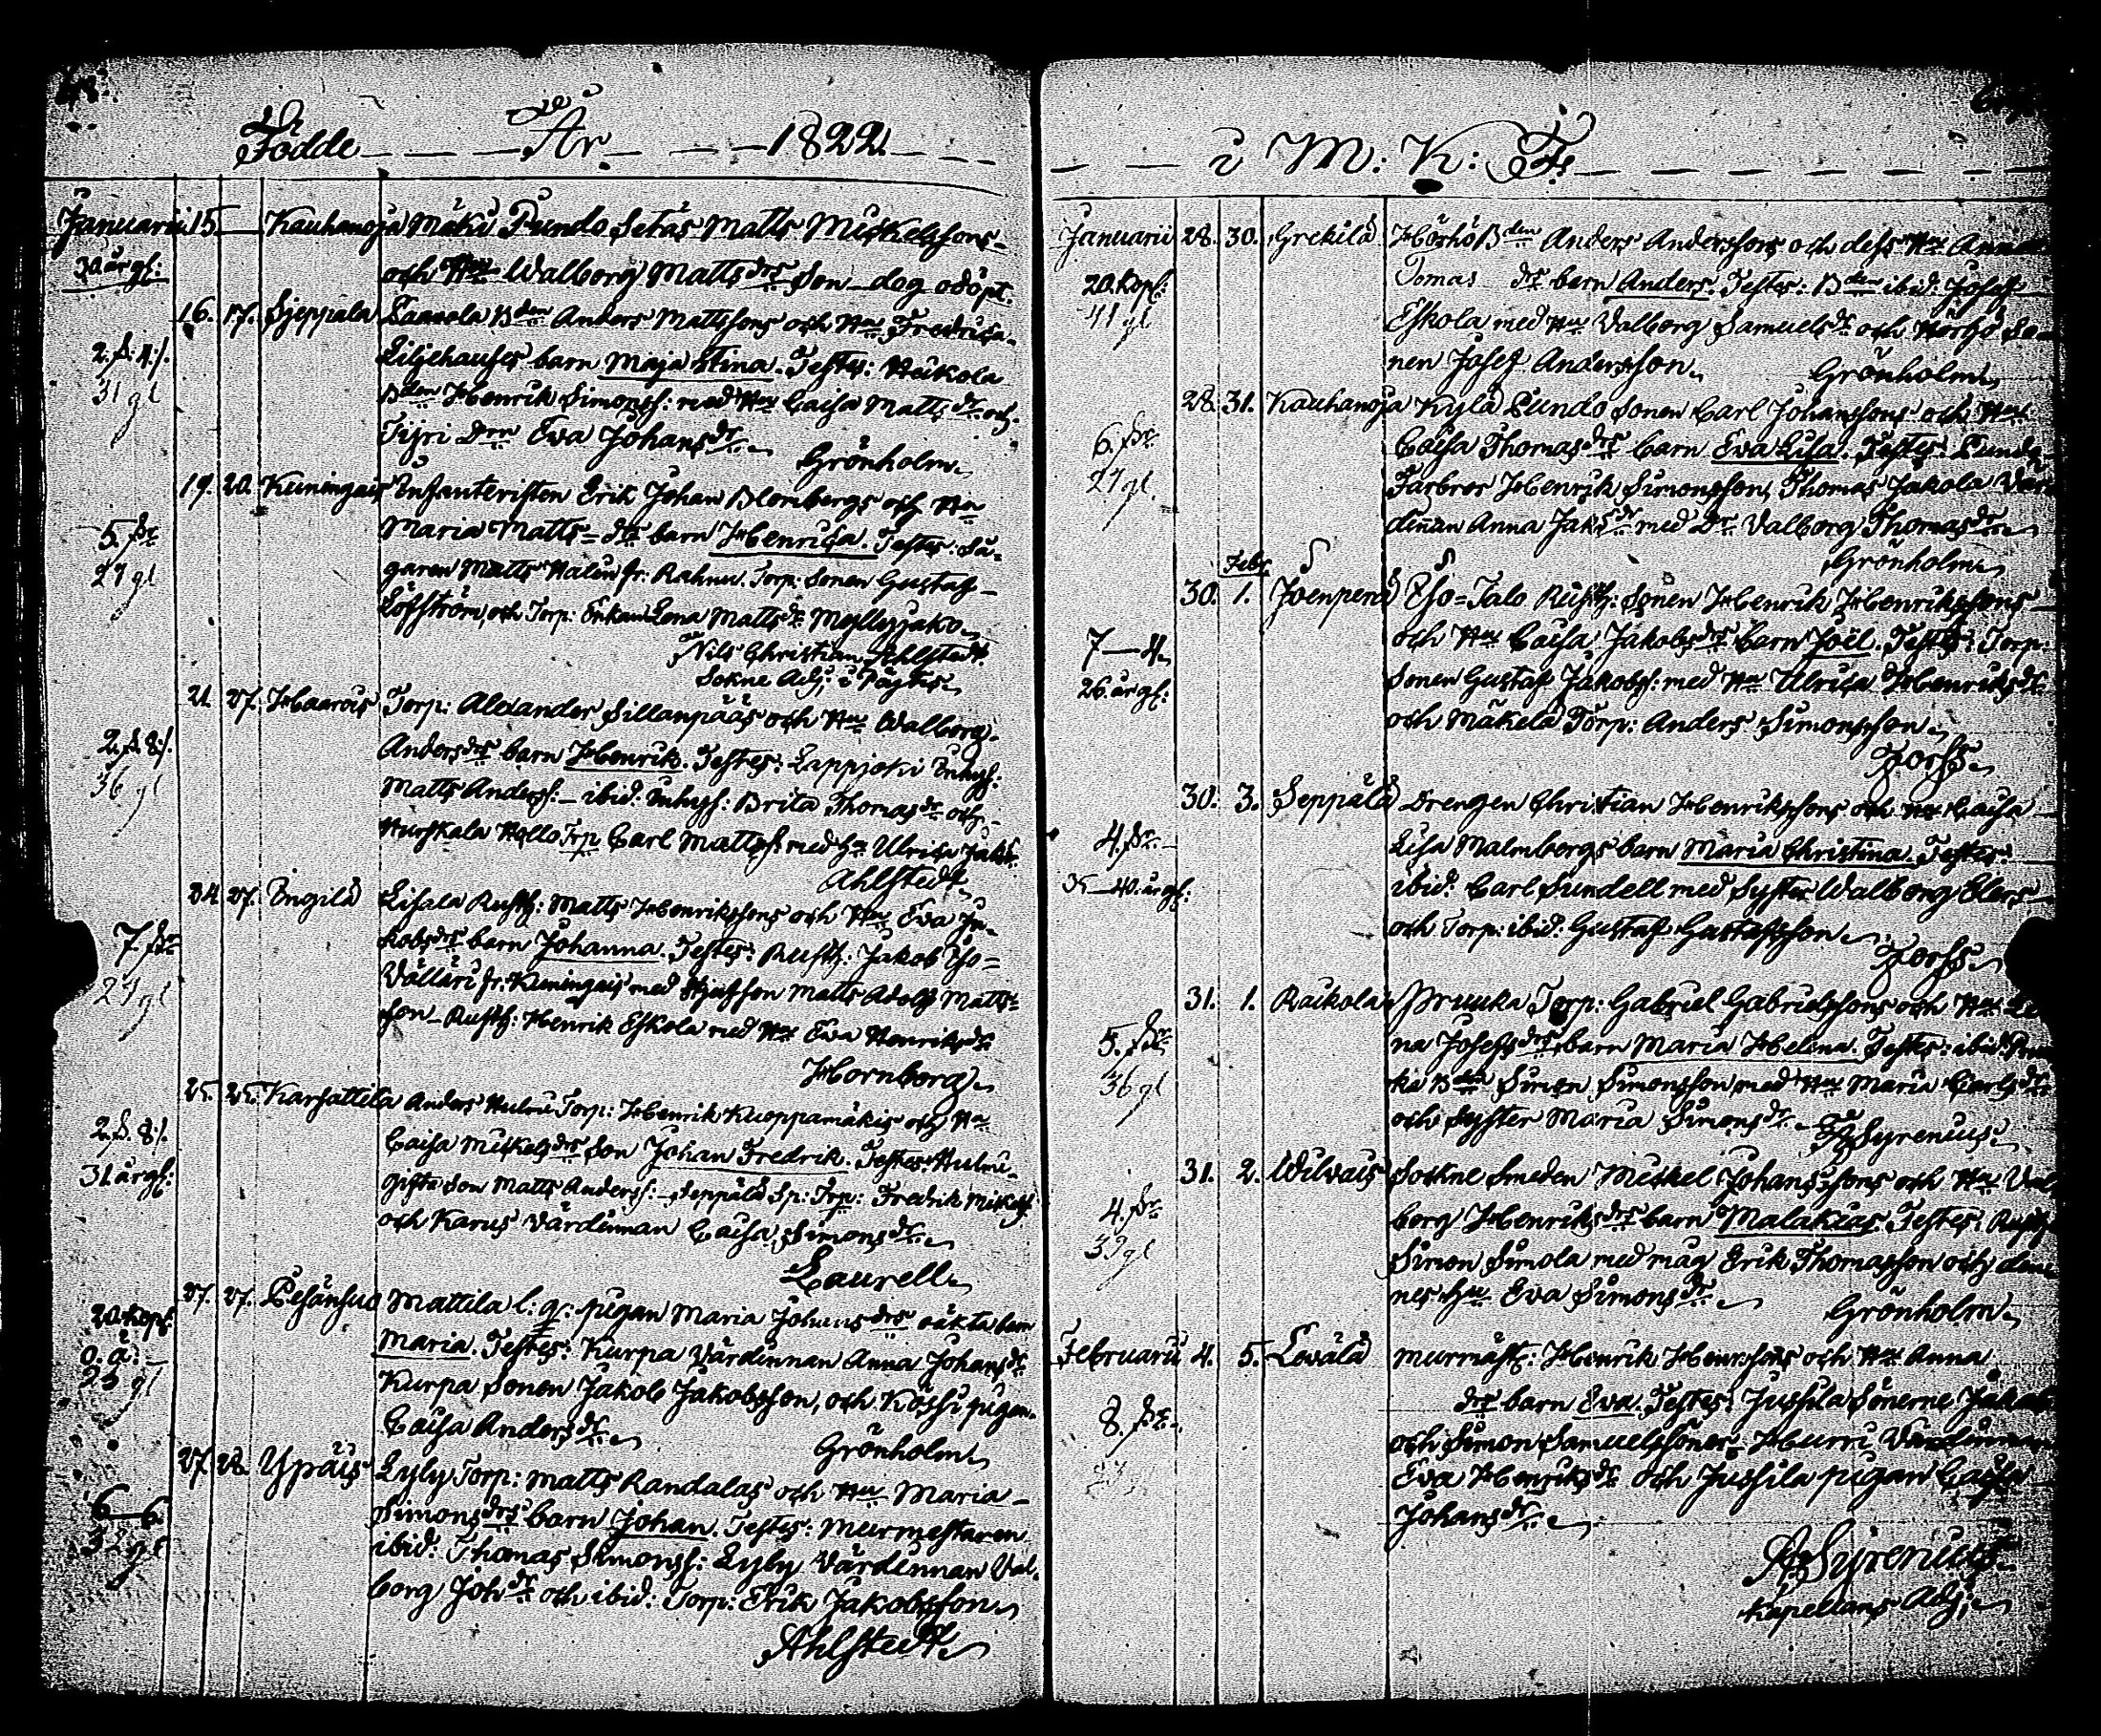 Födde År 1822
Januarii 15 Kauhanoja Mäki Pundo Setäs Matts Mickelssons
30 årgl: och Hu Walborg Matts drs Son dog odöpt.
16. 17. Sjeppälä Taavola Bden Anders Mattssons och Hu Fredrica
2. S: 4 Liljehauses barn Maja Stina. Testes: Heikola
31 gl Bden Henrik Simonss: med Hu Caisa Matts dr och
Tijri Drn Eva Johans dr Grönholm
19. 20. Kuningais Infanteristen Erik Johan Blombergs och Hu
5. Maria Matts= drs barn Henrica. Testes: Så-
27 gl garen Matts Malin fr: Rahnu. Torp: Sonen Gustaf
Löfström, och Torp: Enkan Lena Matts dr Myllyjoko
Nils Christian Ahlstedt.
Sokne Adj: i Pöytis
21. 27. Haarois Torp: Alexander Sillanpääs och Hu Walborg
2. S. 8 Anders drs barn Henrik. Testes: Lappjoki Inhys:
36 gl Matts Anderss: ibid: Inhys: Brita Thomas dr och
Hurskala Hollo Trp Carl Mattss: med Hu Ulrica Jakobs
Ahlstedt
24. 27. Ingilä Lisala Rusth: Matts Henrikssons och Hu Eva Ja-
7. kobs drs barn Johanna. Testes: Rusth: Jakob Iso=
29 gl Välläri fr: Kuningais med Styfson Matts Adolf Matts-
son Rusth: Henrik Eskola med Hu Eva Henriks dr
Hornborg
25. 25. Karsattila Anders Hulmi Torp: Henrik Kuoppamäkis och Hu
2. S. 8 Caisa Mickels drs Son Johan Fredrik. Testes: Hulmi
31 årgl: gifta Son Matts Anderss: Seppälä Sp: Trp: Fredrik Mickelss
och Karus Värdinnan Caisa Simons dr
Laurell
27. 27. Pesänsuo Mattila l: qr: pigan Maria Johans drs oäkta barn
20. Kop: Maria. Testes: Kurpa Värdinnan Anna Johans dr
o. ä: 25 gl Kurpa Sonen Jakob Jakobsson, och Kössi pigan
Caisa Anders dr Grönholm
27. 28. Ypäis Lyly Torp: Matts Randalas och Hu Maria
6 6 Simons drs barn Johan. Testes: Murmestaren
32 gl ibid: Thomas Simonss: Lyly Värdinnan Val-
borg Joh dr och ibid: Torp: Erik Jakobsson
Ahlstedt
i M: K: Fs
Januarii 28. 30. Grekilä Hörhö Bden Anders Anderssons och dess Hu Anna
20. Kop: Tomas drs barn Anders. Testes: Bden ibid: Josef
41 gl Eskola med Hu Valborg Samuels dr och Hörhö So-
nen Josef Andersson Grönholm
28. 31. Kauhanoja Kylä Pundo Sonen Carl Johanssons och Hu
6. Caisa Thomas drs barn Eva Lisa. Testes: Pundo
27 gl. Farbror Henrik Simonsson, Thomas Jakola Vär-
dinnan Anna Jaks dr med Dr Valborg Thomas dr
Grönholm
Febr
30. 1. Joenperä Iso=Talo Rusth: Sonen Henrik Henrikssons
7 4 och Hu Caisa Jakobs drs barn Joël. Testes: Torp:
26 årgl: Sonen Gustaf Jakobss: med Hu Ulrica Henriks dr
och Mäkelä Torp: Anders Simonsson
Forss
30. 3. Seppälä Drengen Christian Henrikssons och Hu Caisa
4. Lisa Malmbergs barn Maria Christina. Testes:
35-40 årgl: ibid: Carl Sundell med Syster Walborg Elers
och Torp: ibid: Gustaf Gustafsson
Forss
31. 1. Raikola Pruuka Torp: Gabriel Gabrielssons och Hu Le-
5. na Josefs drs barn Maria Helena. Testes: ibid: Pruu
36 gl ka Bden Simon Simonsson med Hu Maria Carls dr
och Syster Maria Simons dr Syrenius
31. 2. Wilvais Sockne Smeden Mickel Johanssons och Hu Val
4. borg Henriks drs barn Malakias. Testes: Rusth:
39 gl Simon Simola med måg Erik Thomasson och den
nes Hu Eva Simons dr Grönholm
Februarii 4. 5. Leväla murmäst: Henrik Henrssons och Hu Anna
8. drs barn Eva. Testes: Jussila Sönerne Jakob
och Simon Samuelssöner, Hurri Värdinnan
Eva Henriks dr och Jussila pigan Caisa
Johans dr
Syrenius
Kapellans Adj: